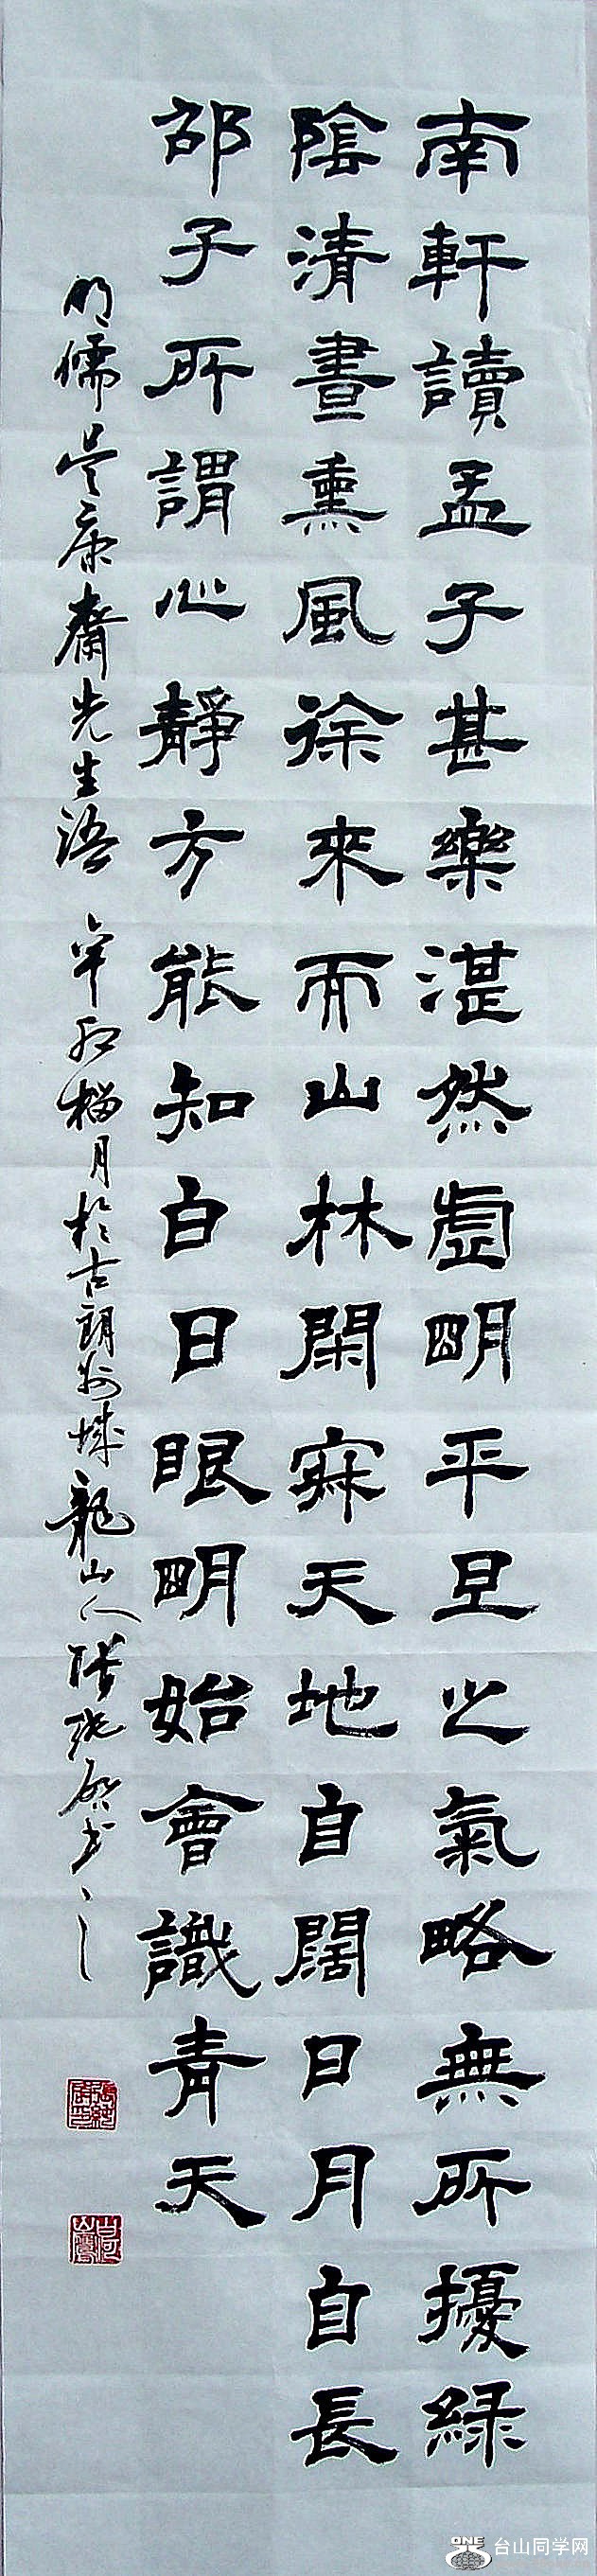 南軒讀孟子甚樂湛然虛明平旦之氣略無所擾綠
陰清晝熏風徐來而山林閑寂天地自闊日月自長
邵子所謂心靜方能知白日眼明始會識青天
明儒吳康齋先生語 辛卯榴月於古朗州城龍山人張純啟書
ONE 台山同学网